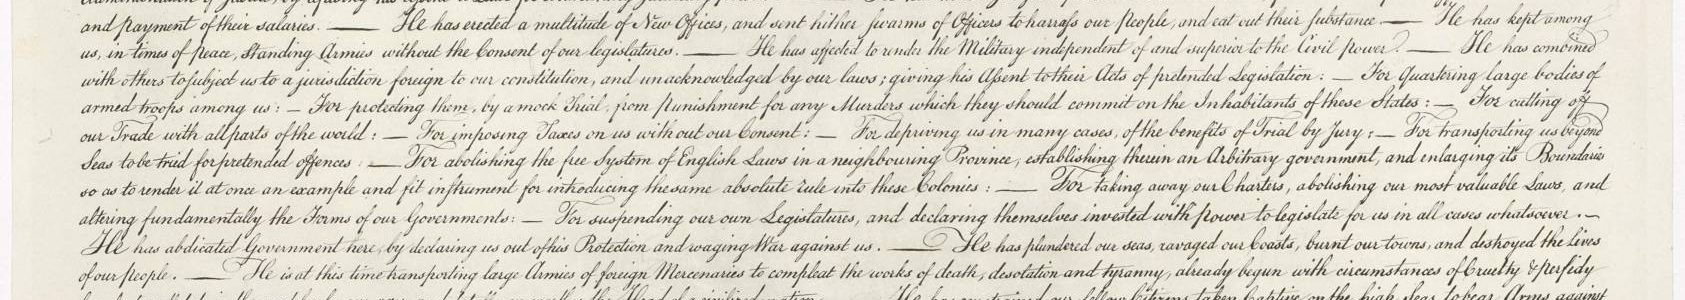 and payment of their salaries. — He has erected a multitude of New Offices, and sent hither swarms of Officers to harrass our People, and eat out their substance. — He has kept among
us, in times of peace, Standing Armies without the Consent of our legislatures. — He has affected to render the Military independent of and superior to the Civil power. — He has combined
with others to subject us to a jurisdiction foreign to our constitution, and unacknowledged by our laws; giving his Assent to their Acts of pretended Legislation: — For Quartering large bodies of
armed troops among us: — For protecting them, by a mock Trial, from punishment for any Murders which they should commit on the Inhabitants of these States: — For cutting off
our Trade with all parts of the world: — For imposing Taxes on us without our Consent: — For depriving us in many cases, of the benefits of Trial by Jury: — For transporting us beyond
Seas to be tried for pretended offences: — For abolishing the free System of English Laws in a neighbouring Province, establishing therein an Arbitrary government, and enlarging its Boundaries
so as to render it at once an example and fit instrument for introducing the same absolute rule into these Colonies: — For taking away our Charters, abolishing our most valuable Laws, and
altering fundamentally the Forms of our Governments: — For suspending our own Legislatures, and declaring themselves invested with power to legislate for us in all cases whatsoever. —
He has abdicated Government here, by declaring us out of his Protection and waging War against us. — He has plundered our seas, ravaged our Coasts, burnt our towns, and destroyed the lives
of our people. — He is at this time transporting large Armies of foreign Mercenaries to compleat the works of death, desolation and tyranny, already begun with circumstances of Cruelty & perfidy